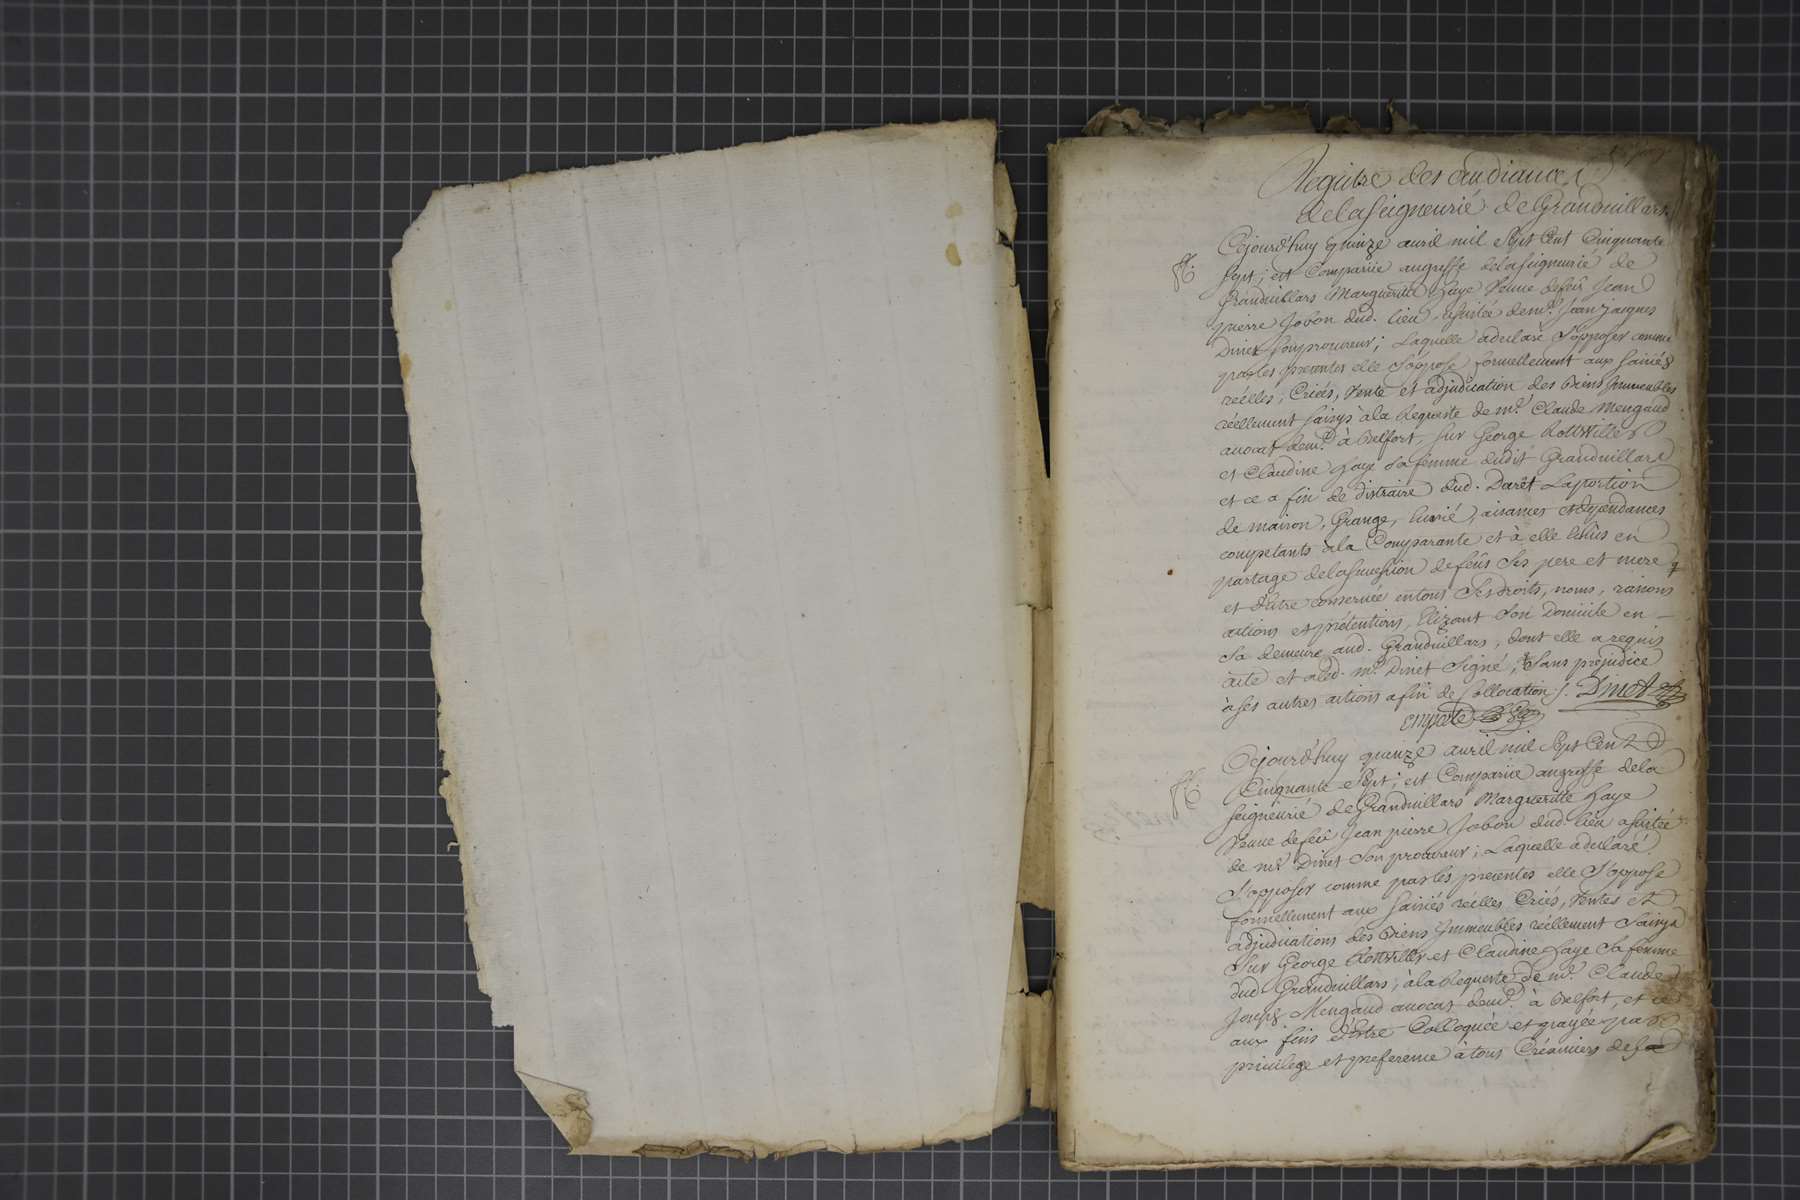 Registre des audiances
de la seigneurié de Granduillars
Cejourd'huy quinze auril mil sept Cent Cinquante
sept; est Comparüe au greffe de la seigneurie de
Granduillars Margueritte haye Veuue de feü Jean
pierre Jobon dud. lieu, assistée de me. Jean jacques
Dinet son procureur; Laquelle a declaré s'opposer comme
par les presentes elle s'oppose formellement aux saisiés
reélles, Criées, Vente et adjudication des biens Immeubles
réellement saisys à la Requeste de me. Claude Mengaud
auocat demt. à Belfort, sur George Rottwiller
et Claudine haye sa femme dudit Granduillars
et ce a fin de distraire dud. Decrêt La portion
de maison, Grange, Ecurié, aisances et dépendances
competants à la Comparante et à elle Echüs en
partage de la succession de feüs ses pere et mere
et d'être conseruée en tous ses droits, noms, raisons
actions et prétentions, Elizant son Domicile en
sa demeure aud. Granduillars, dont elle a requis
acte et a led. me. Dinet signé, sans préjudice
à ses autres actions afin de Collocation /. Dinet
Cejourd'huy quinze auril mil sept Cent
Cinquante sept; est Comparüe au greffe de la
seigneurié de Granduillars Margueritte haye
Veuue de feü Jean pierre Jobon dud. lieu assistée
de me. Dinet son procureur; Laquelle a declaré
s'opposer comme par les presentes elle s'oppose
formellement aux saisiés réelles, Criés, Ventes et
adjudications des biens Immeubles réellement saisys
sur George Rottviller et Claudine haye sa femme
dud. Granduillars, à la Requeste de me. Claude
Joseph Mengaud auocat demt. à Belfort, et ce
aux fins d'être Colloquée et payée par
priuilege et preference à tous Créanciers de la